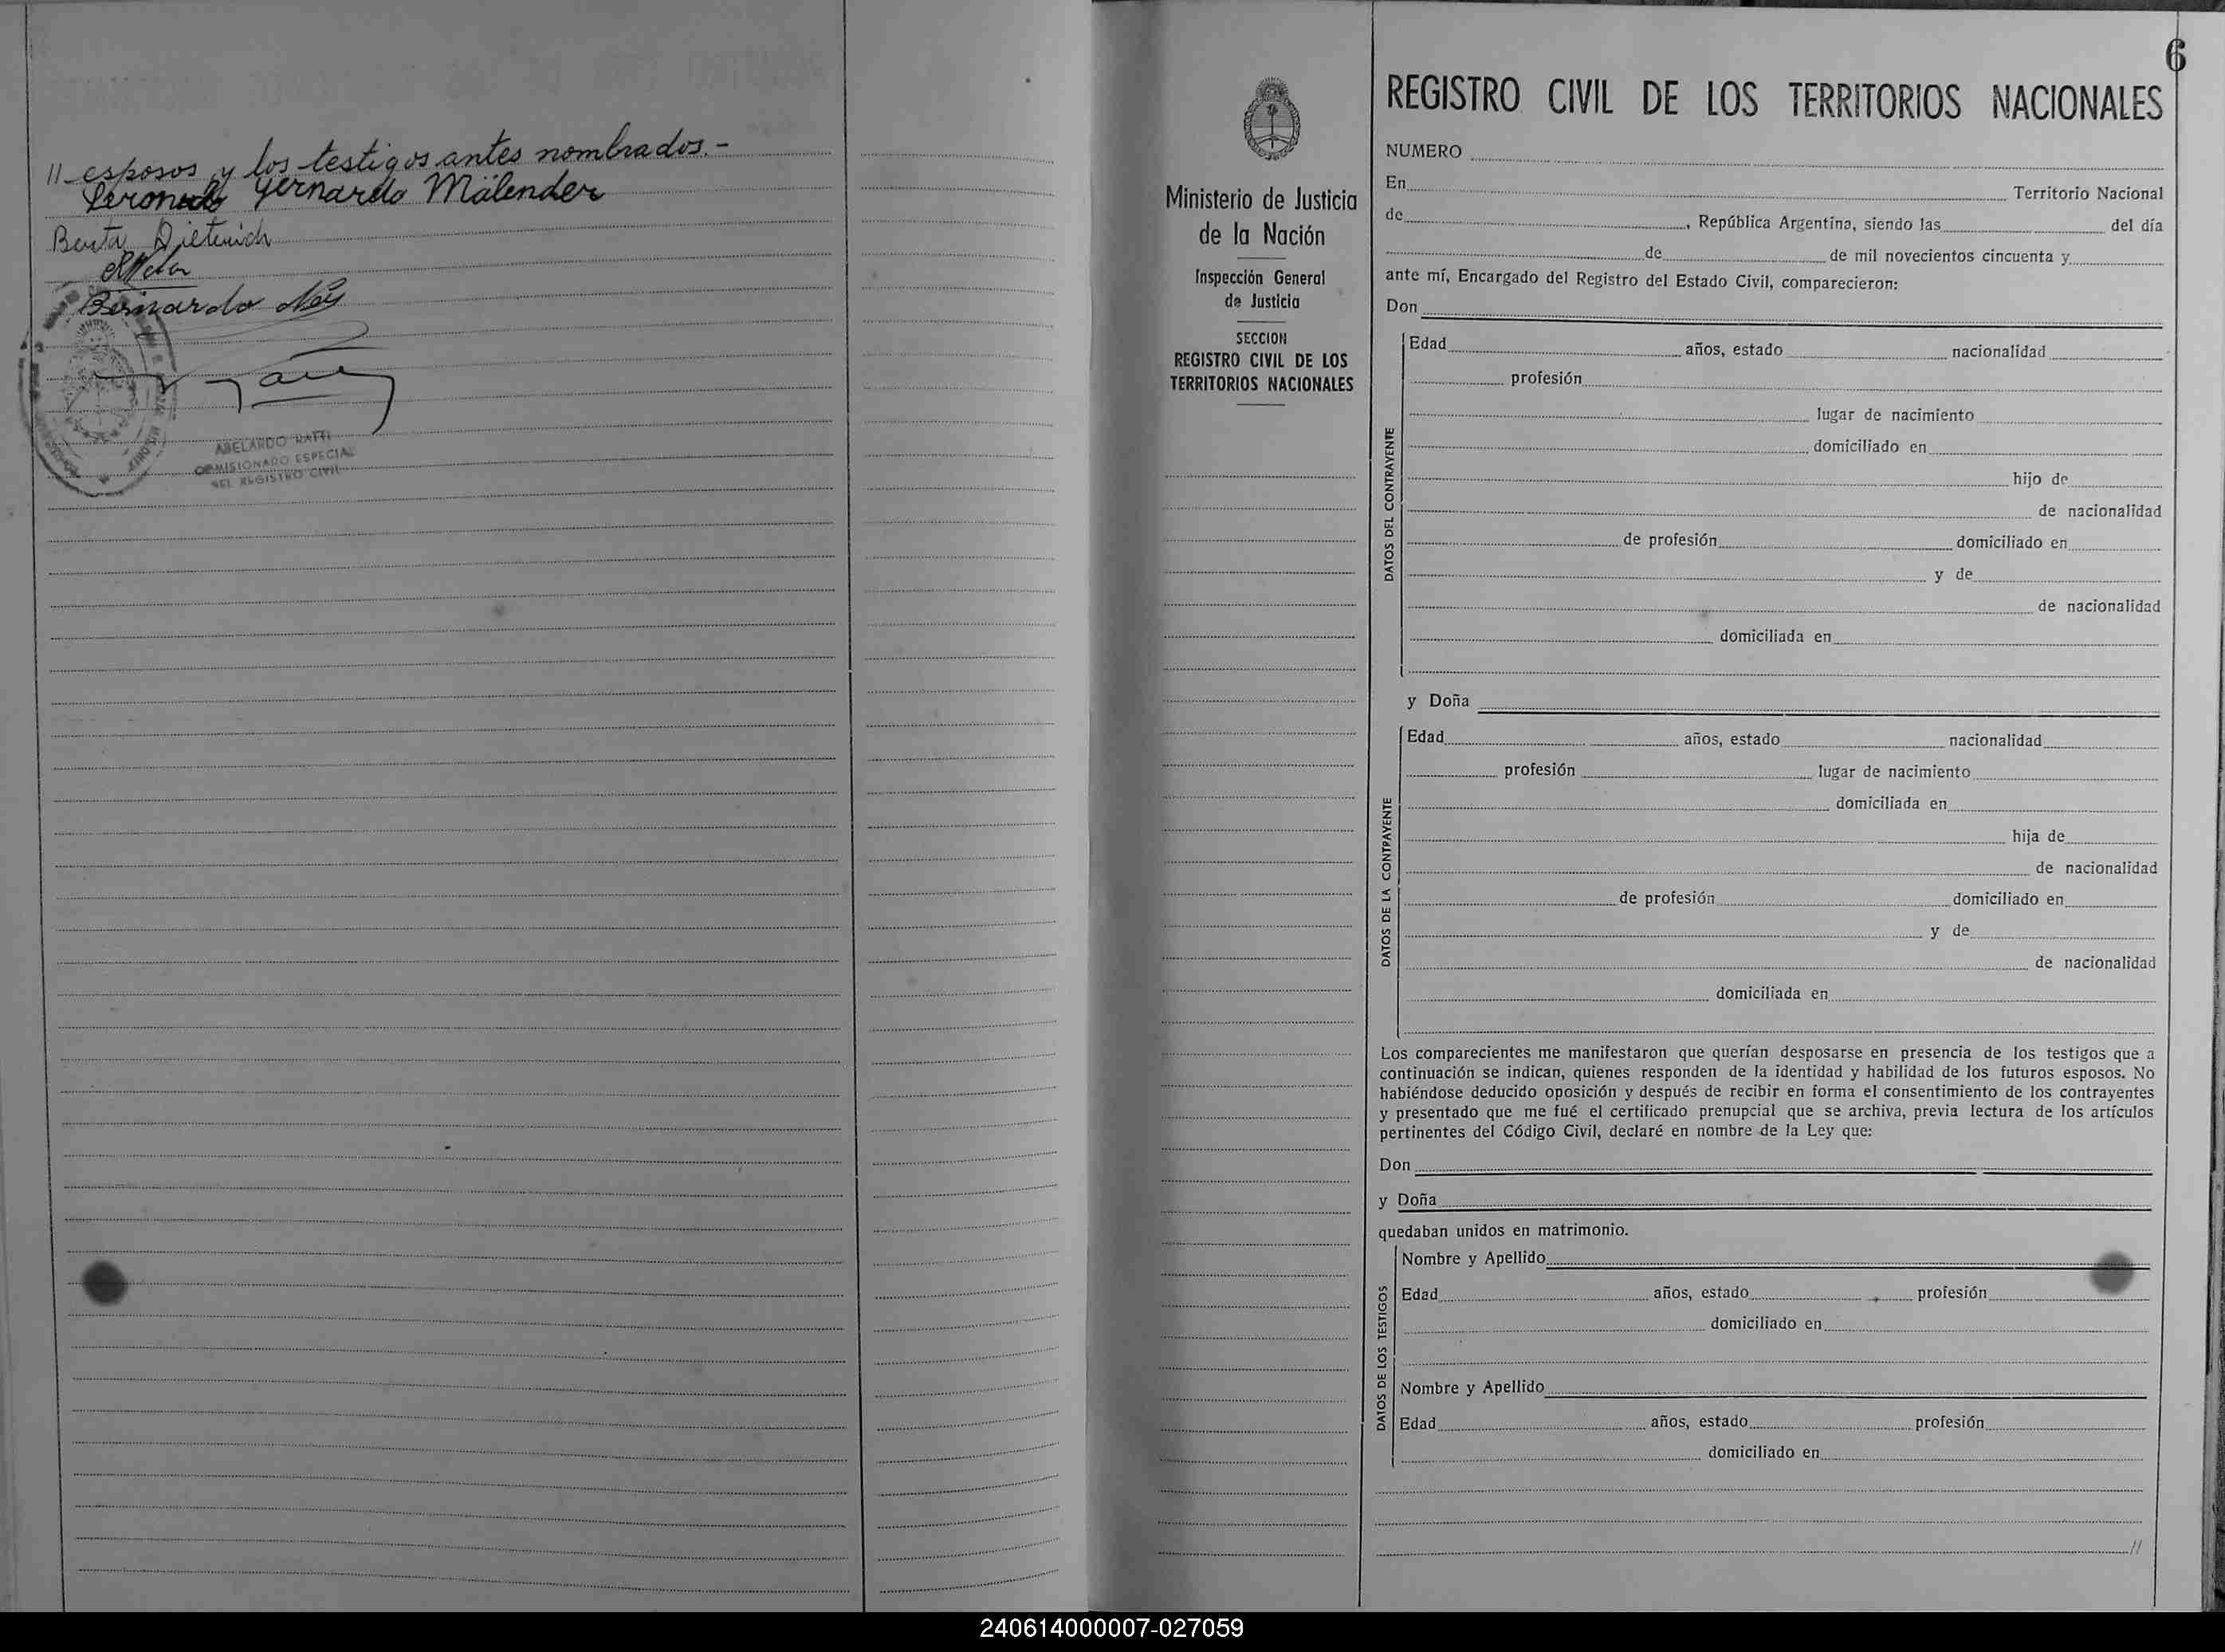 //-esposos y los testigos antes nombrados.-
Gernardo Mälender
Berta Dieterich
Bernardo
ABELARDO RATTI
COMISIONADO ESPECIAL
DEL REGISTRO CIVIL
6
Ministerio de Justicia
de la Nación
Inspección General
de Justicia
SECCION
REGISTRO CIVIL DE LOS
TERRITORIOS NACIONALES
REGISTRO CIVIL DE LOS TERRITORIOS NACIONALES
NUMERO
En Territorio Nacional
de , República Argentina, siendo las del día
de de mil novecientos cincuenta y
ante mí, Encargado del Registro del Estado Civil, comparecieron:
Don
DATOS DEL CONTRAYENTE
Edad años, estado nacionalidad
profesión
lugar de nacimiento
domiciliado en
hijo de
de nacionalidad
de profesión domiciliado en
y de
de nacionalidad
domiciliada en
y Doña
DATOS DE LA CONTRAYENTE
Edad años, estado nacionalidad
profesión lugar de nacimiento
domiciliada en
hija de
de nacionalidad
de profesión domiciliado en
y de
de nacionalidad
domiciliada en
Los comparecientes me manifestaron que querían desposarse en presencia de los testigos que a
continuación se indican, quienes responden de la identidad y habilidad de los futuros esposos. No
habiéndose deducido oposición y después de recibir en forma el consentimiento de los contrayentes
y presentado que me fué el certificado prenupcial que se archiva, previa lectura de los artículos
pertinentes del Código Civil, declaré en nombre de la Ley que:
Don
y Doña
quedaban unidos en matrimonio.
DATOS DE LOS TESTIGOS
Nombre y Apellido
Edad años, estado profesión
domiciliado en
Nombre y Apellido
Edad años, estado profesión
domiciliado en
//
240614000007-027059